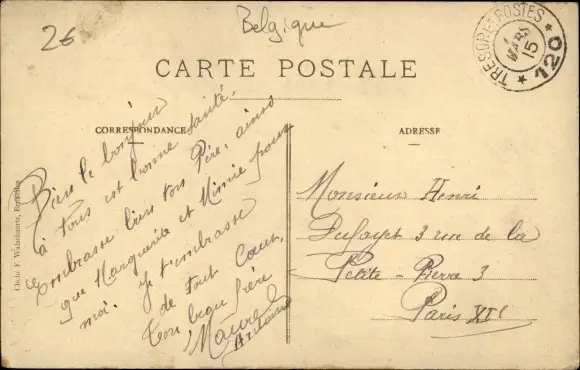 26
Belgique
TRESOR ET POSTES
MARS
15
* 120 *
CARTE POSTALE
CORRESPONDANCE
ADRESSE
Bien le bonjour
à tous et bonne santé.
Embrasse bien ton Père, ainsi
que Marguerite et Mimie pour
moi. Je t'embrasse
de tout Coeur,
Ton beau frère
Monsieur Henri
Dufayet 3 rue de la
Petite - Pierre 3
Paris XIe
Cliché F. Walschaerts, Bruxelles